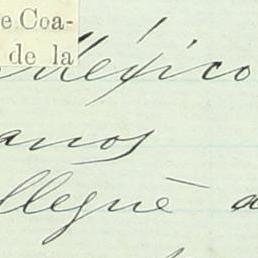 e Coa-
de la
México
anos
llegué a